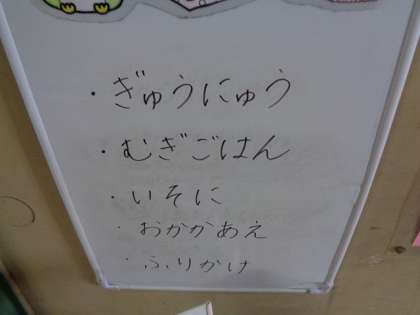 ・ぎゅうにゅう
・むぎごはん
・いそに
・おかかあえ
・ふりかけ